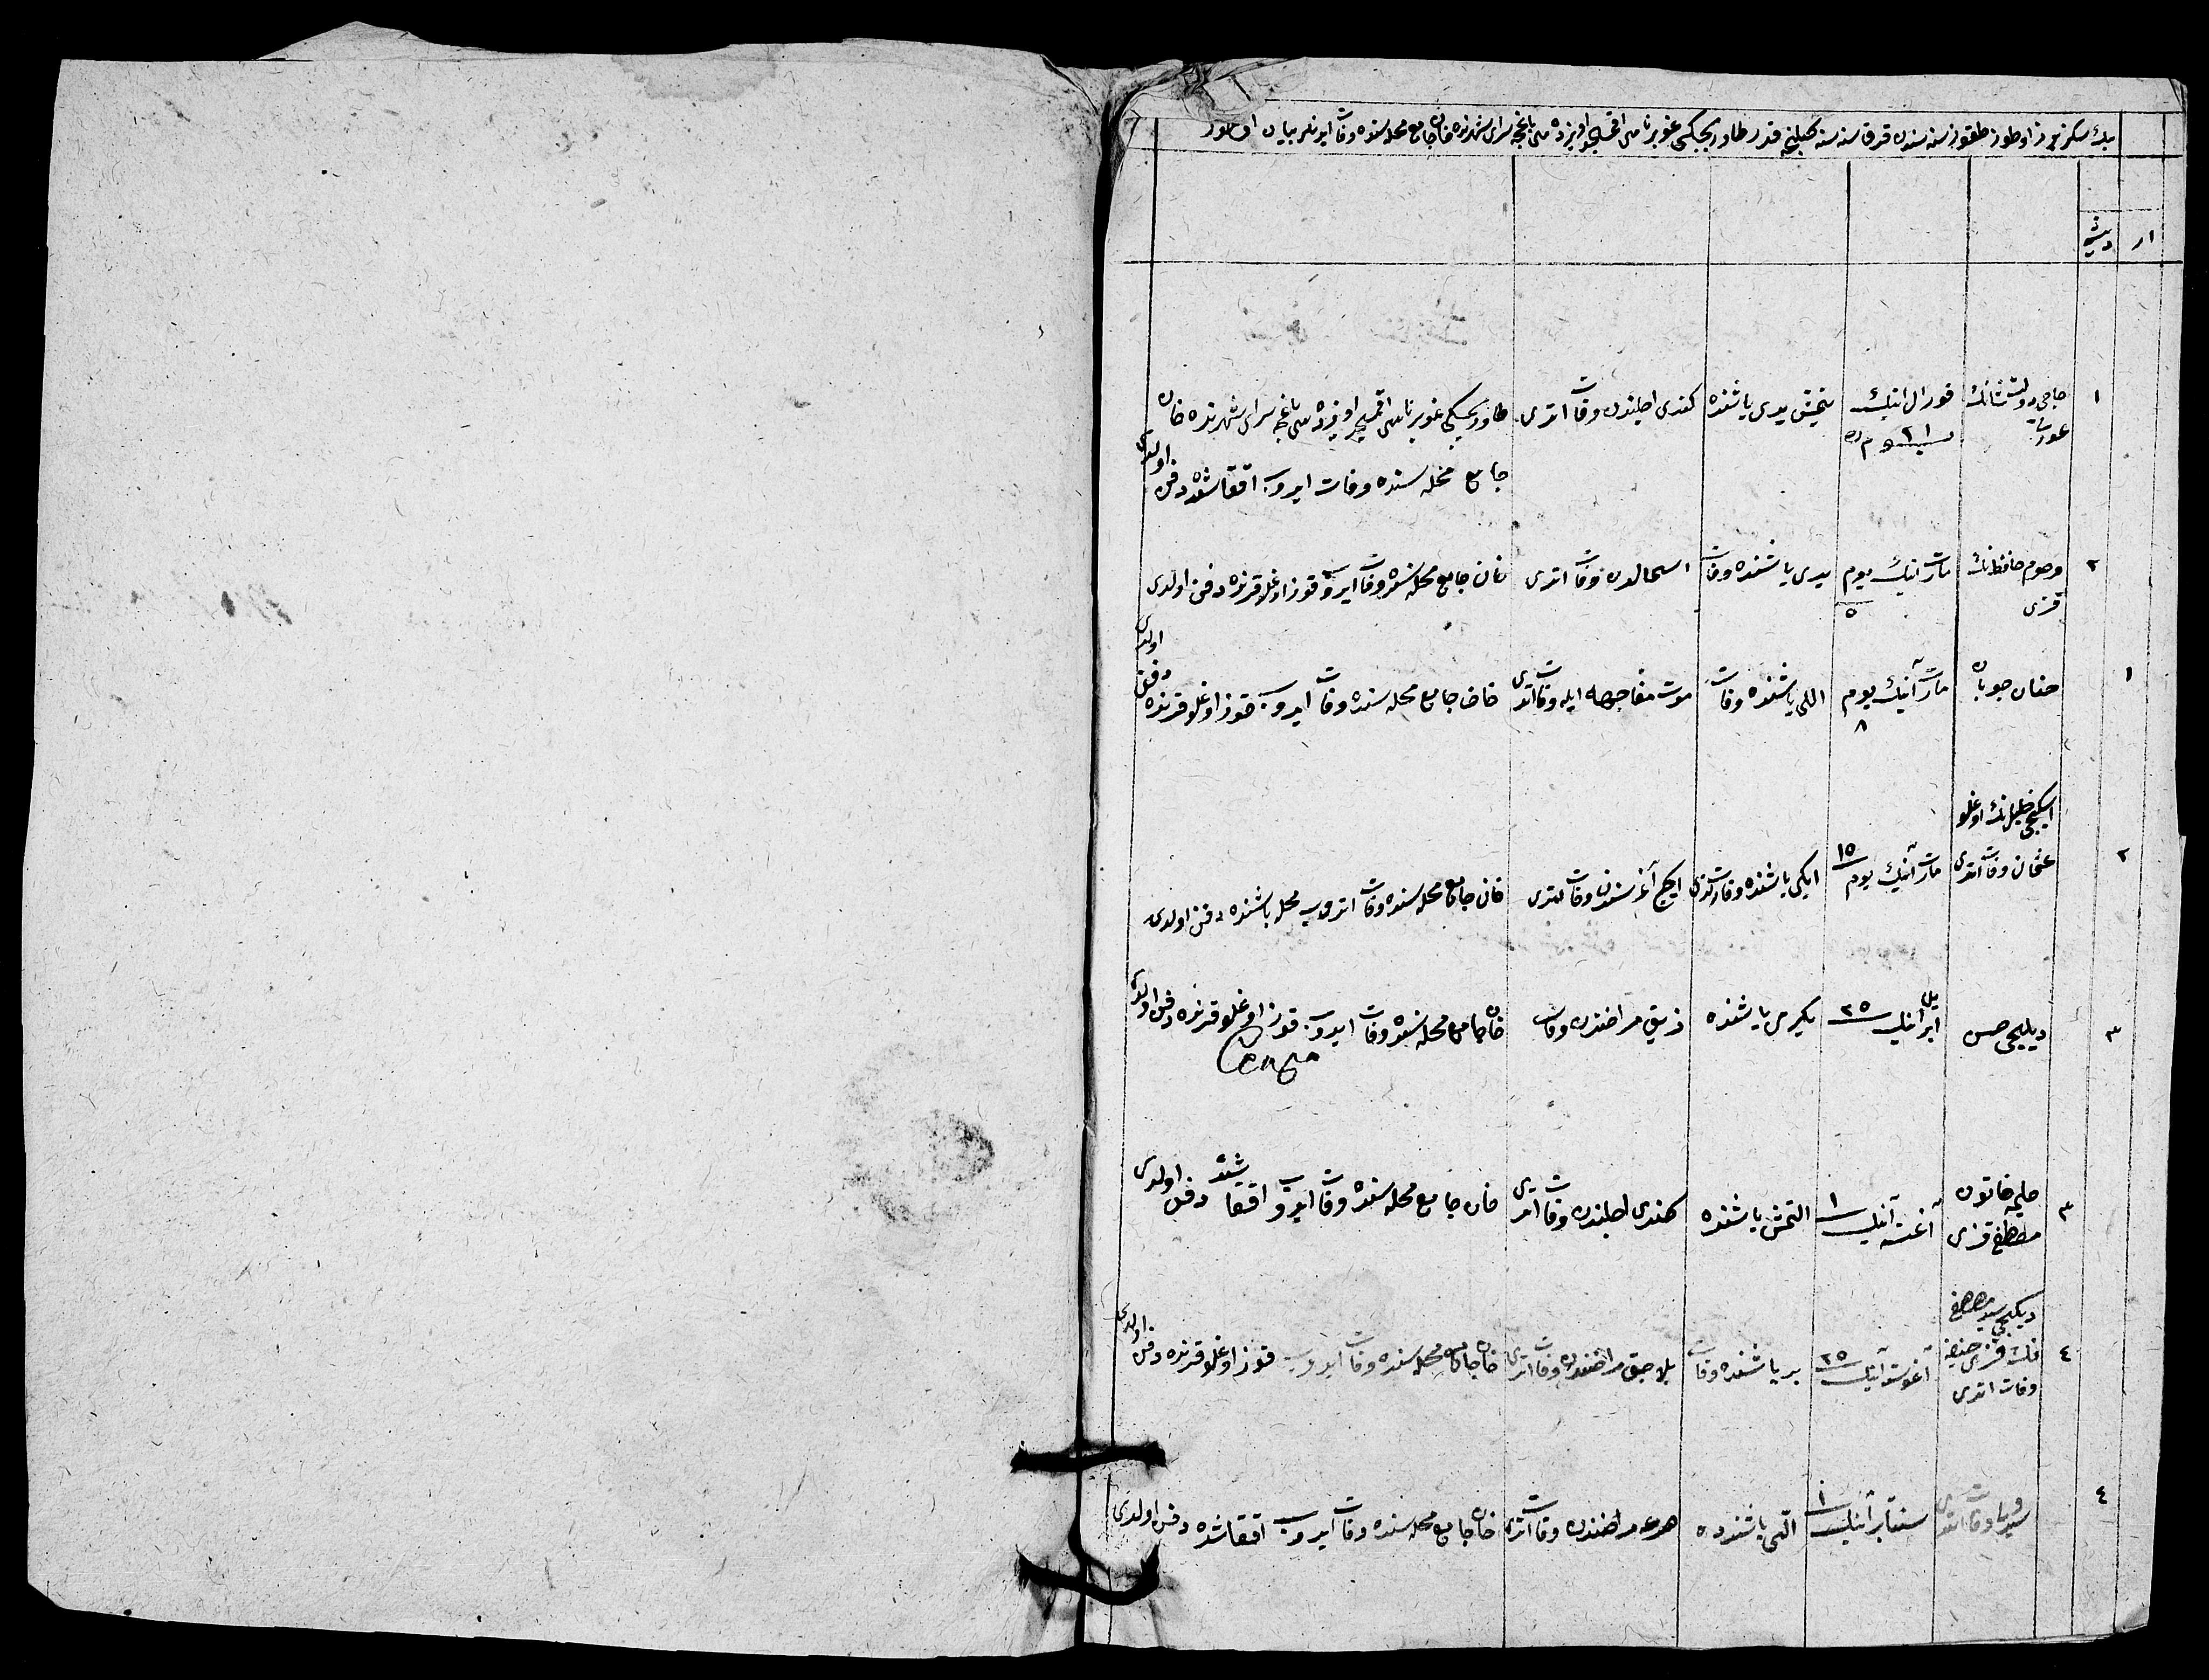 بیك سكز یوز اوطوز طقوز سنه سندن قرق سنه سنه كلنجه قدر طاوریچیسكی غوبرناسی اقمسجد اویزده سی باغچه سرای شهرنده خان جامع محله سنده وفات ایدنلر بیان اولنور
ار
دیشی
١
حاجی دولتشانك
عورتی
قورال اینك
٢١
یتمش یدی یاشنده
كندی اجلندن وفات اتدی
طاوریچیسكی غوبرناسی اقمسجد اویزده سی باغچه سرای شهرنده خان
جامع محله سنده وفات ایدوب اققاشده دفن اولدی
٢
حافظنك
قزی
مارت اینك یوم
٥
یدی یاشنده وفات
اسحالدن وفات اتدی
خان جامع محله سنده وفات ایدوب قوز اوغلو قرنده دفن اولدی
١
جوبان
مارت آینك یوم
٨
اللی یاشنده وفات
موت مفاجهه ایله وفات اتدی
خان جامع محله سنده وفات ایدوب قوز اوغلو قرنده دفن اولدی
٢
اسكیجی خلیل نك اوغلو
عثمان وفات اتدی
مارت آینك یوم ١٥
ایكی یاشنده وفات اتدی
ایچ آغرسندن وفات اتدی
خان جامع محله سنده وفات اتدوب محله باشنده دفن اولدی
٣
دیلیجی حسن
ایریل اینك ٢٥
یكیرمی یاشنده
ذیق مراضندن وفات
خان جامع محله سنده وفات ایدوب قوز اوغلو قرنده دفن اولدی
٣
حلیمه خاتون
مصطفی قزی
آغسته آینك ١
التمش یاشنده
كندی اجلندن وفات اتدی
خان جامع محله سنده وفات ایدوب اققاشده دفن اولدی
٤
دیكیجی سید مصطفی
نك قزی حنیفه
وفات اتدی
آغوسته آینك ٢٥
بر یاشنده وفات
بلاجق مراضندن وفات اتدی
خان جامع محله سنده وفات ایدوب قوز اوغلو قرنده دفن اولدی
٤
وفات اتدی
سنتابر آینك ١
التی یاشنده
مراضندن وفات اتدی
خان جامع محله سنده وفات ایدوب اققاشده دفن اولدی